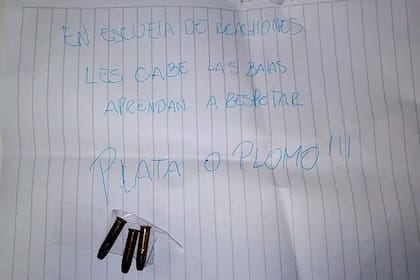 EN ESCUELA DE ACACHIONES
LES CABE LAS BALAS
APRENDAN A RESPETAR
PLATA O PLOMO!!!